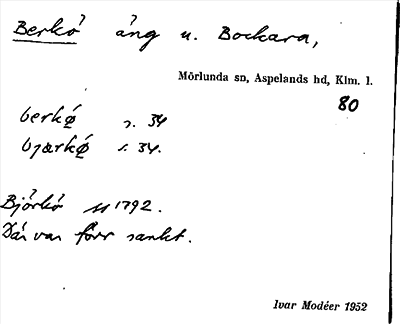 Berkö äng u. Bockara,
Mörlunda sn, Aspelands hd, Klm. l.
80
berkö s. 34
bjærkö s. 34.
Björkö 1792.
Där var förr sankt.
Ivar Modéer 1952